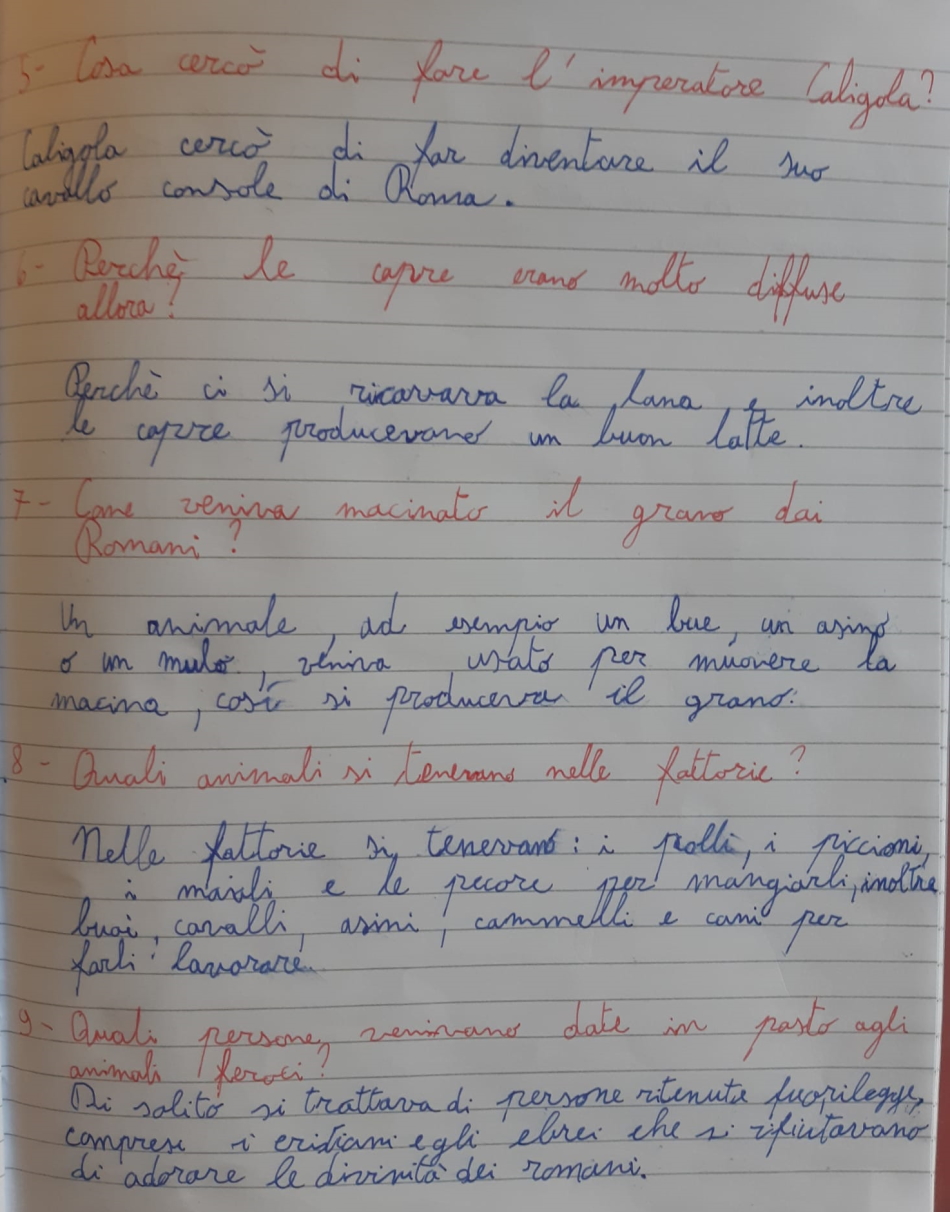 5- Cosa cercò di fare l'imperatore Caligola?
Caligola cercò di far diventare il suo
cavallo console di Roma.
6- Perchè le capre erano molto diffuse
allora?
Perchè ci si ricavava la lana e inoltre
le capre producevano un buon latte.
7- Come veniva macinato il grano dai
Romani?
Un animale, ad esempio un bue, un asino
o un mulo, veniva usato per muovere la
macina, così si produceva il grano.
8- Quali animali si tenevano nelle fattorie?
Nelle fattorie si tenevano: i polli, i piccioni,
i maiali e le pecore per mangiarli, inoltre
buoi, cavalli, asini, cammelli e cani per
farli lavorare.
9- Quali persone venivano date in pasto agli
animali feroci?
Di solito si trattava di persone ritenute fuorilegge,
compresi i cristiani e gli ebrei che si rifiutavano
di adorare le divinità dei romani.